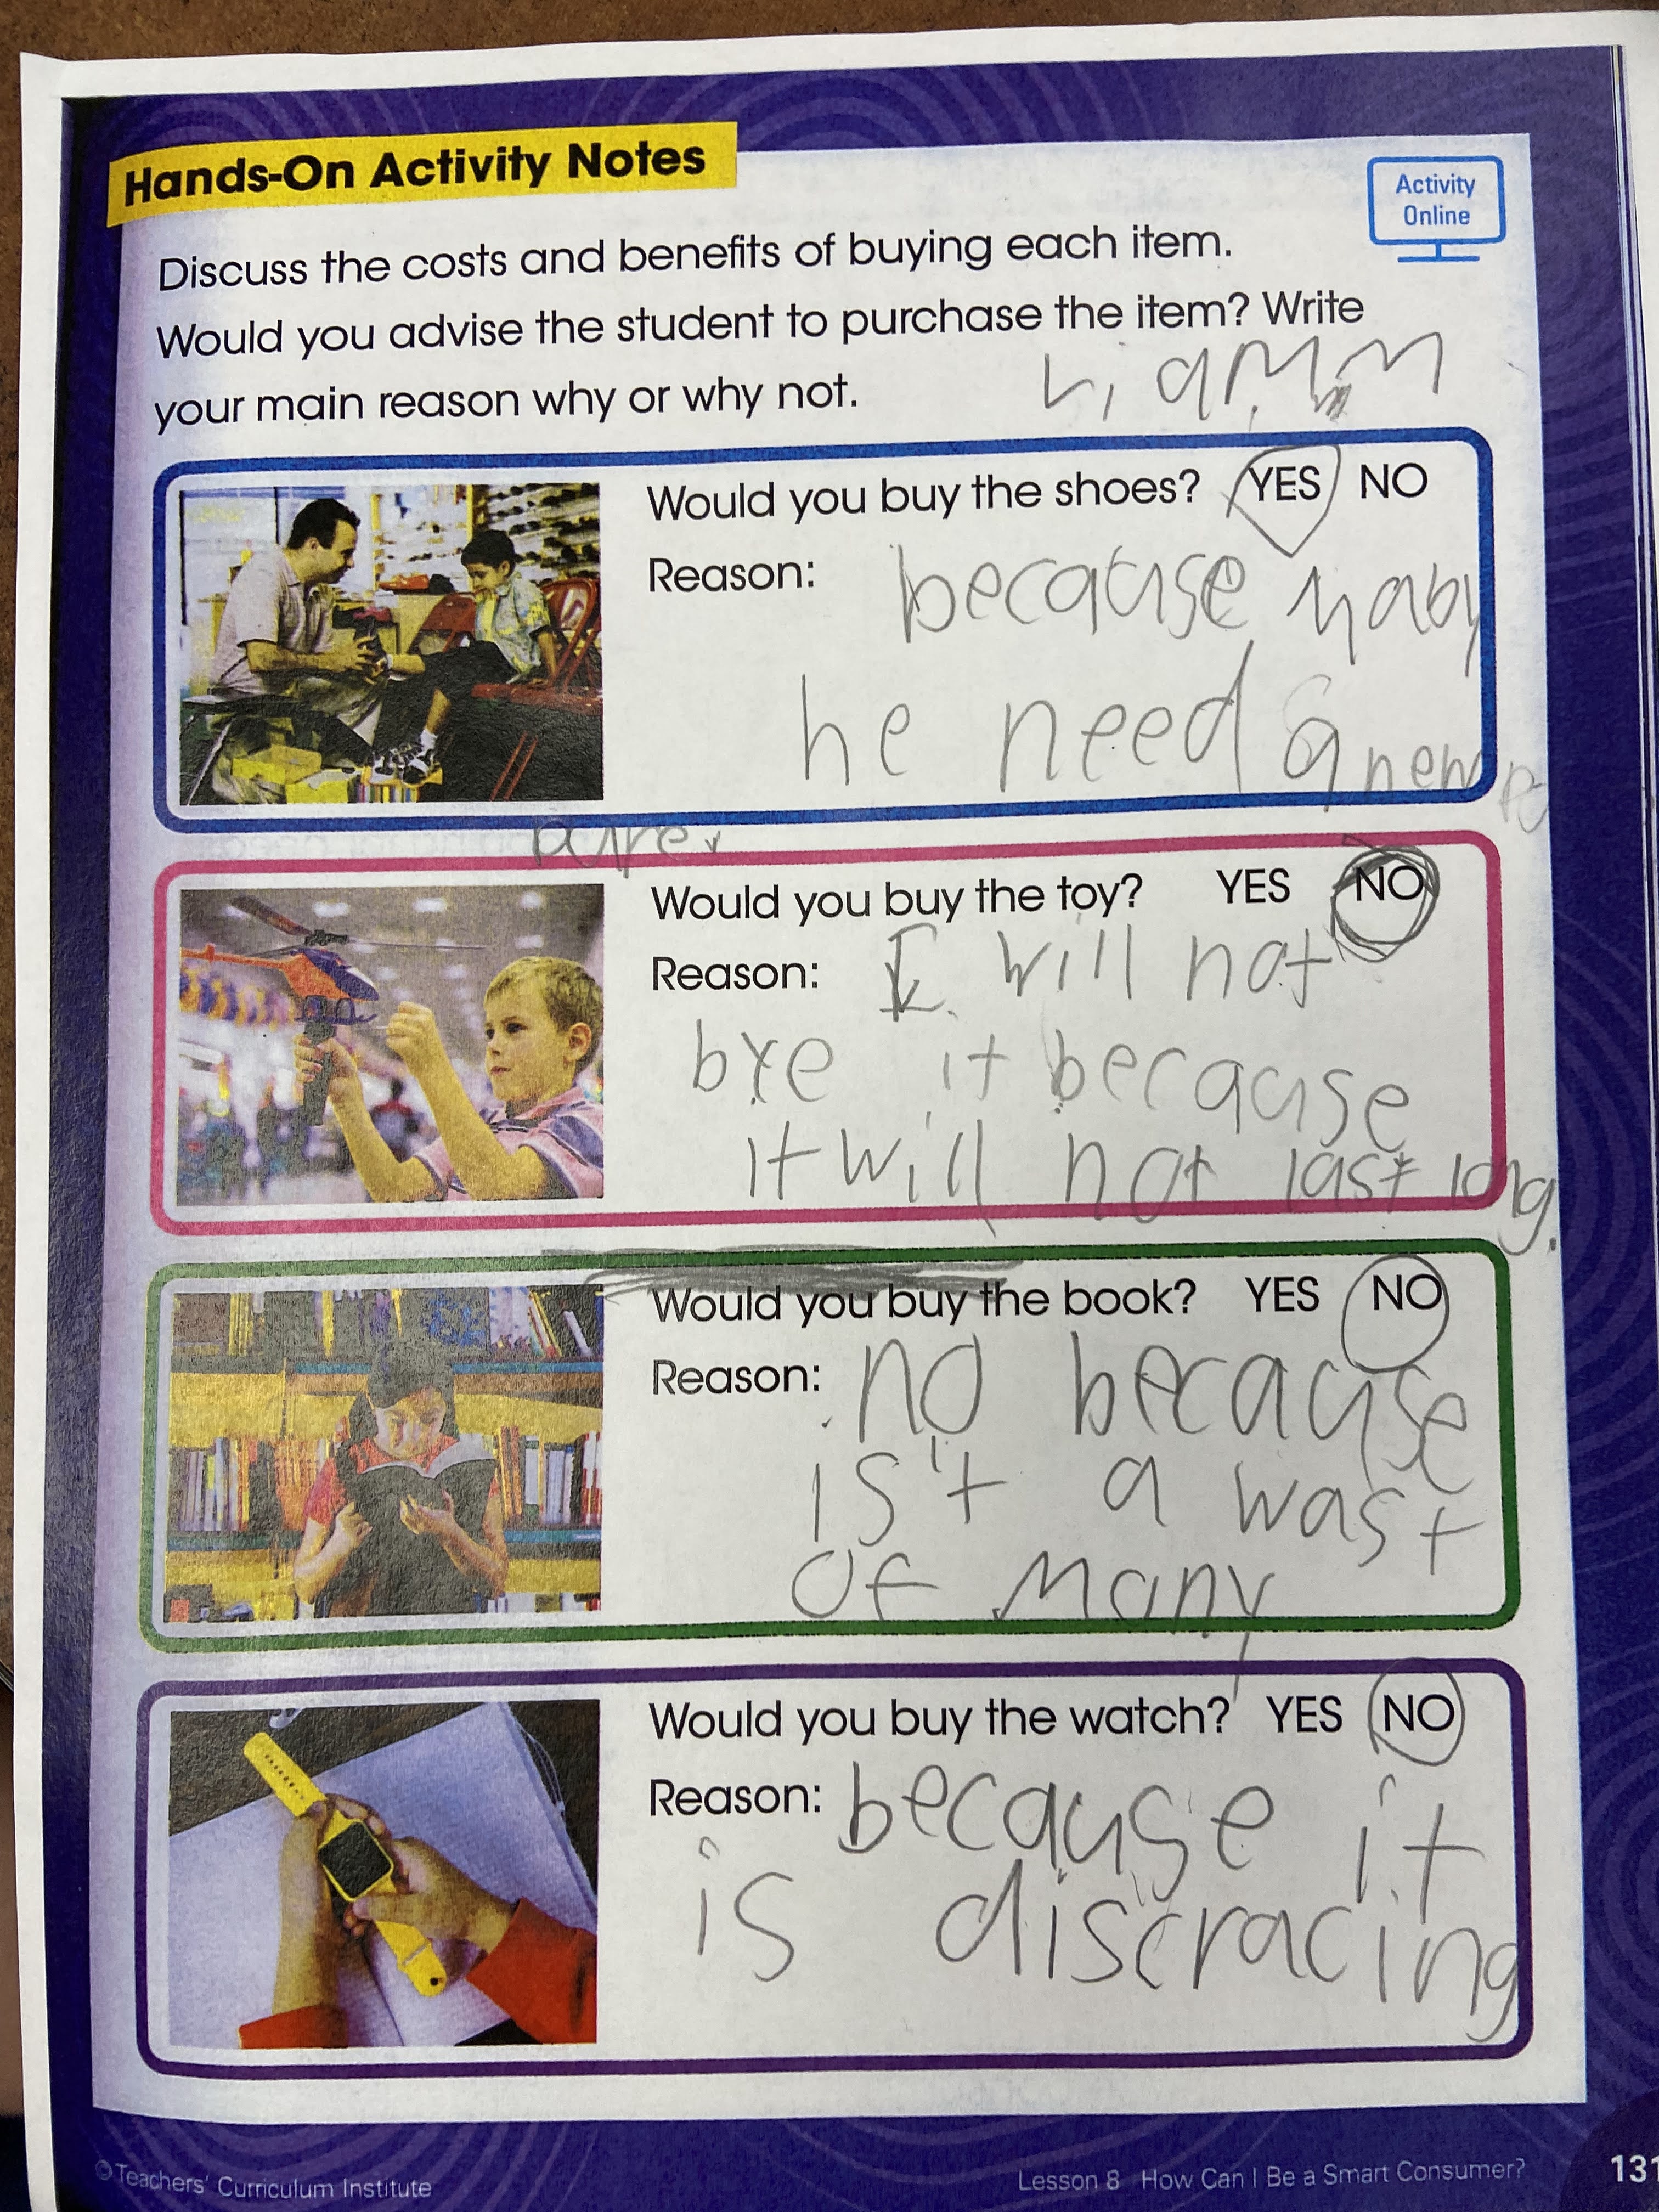 Hands-On Activity Notes
Activity
Online
Discuss the costs and benefits of buying each item.
Would you advise the student to purchase the item? Write
your main reason why or why not.
Liam M
Would you buy the shoes? YES NO
Reason: because maby
he need a new
pare.
Would you buy the toy? YES NO
Reason: I will not
bye it because
it will not last long.
Would you buy the book? YES NO
Reason: no because
is't a wast
of many
Would you buy the watch? YES NO
Reason: because it
is discracing
©Teachers' Curriculum Institute
Lesson 8 How Can I Be a Smart Consumer? 131